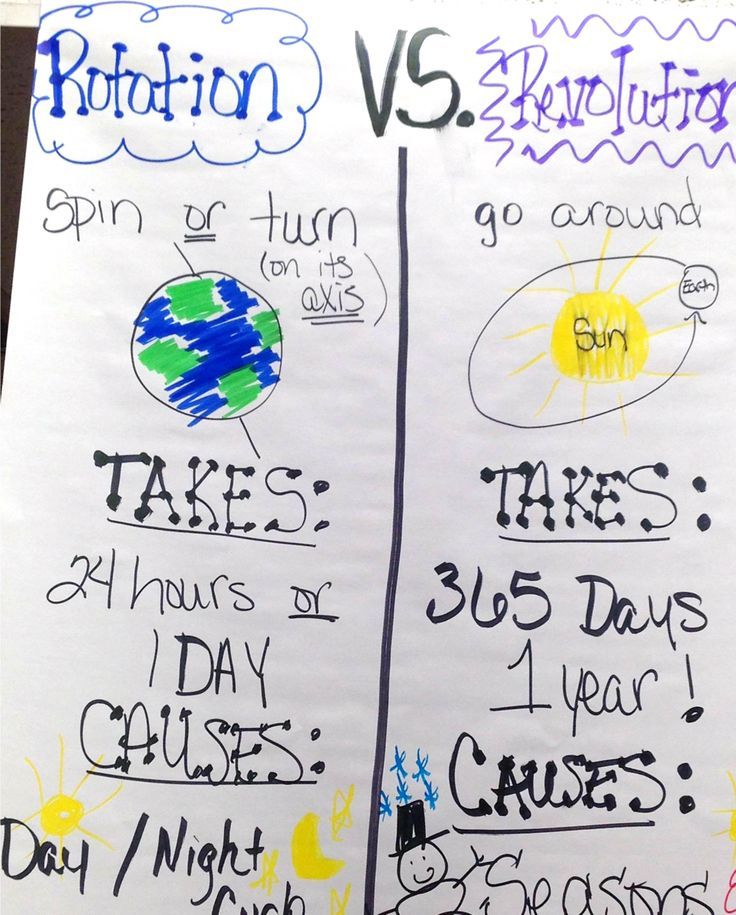 Rotation
VS.
Revolution
spin or turn
(on its
axis)
TAKES:
24 hours or
1 DAY
CAUSES:
Day / Night
Cycle
go around
Sun
Earth
TAKES:
365 Days
1 year!
CAUSES:
Seasons